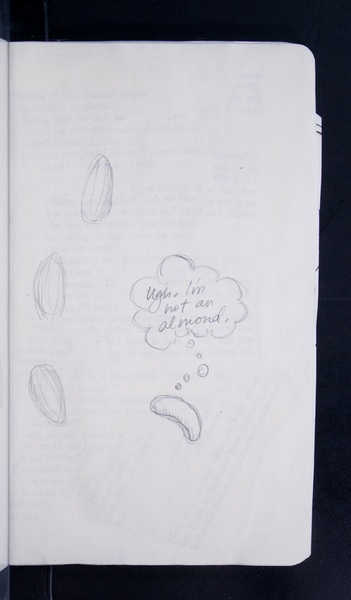 Ugh. I'm
not an
almond.